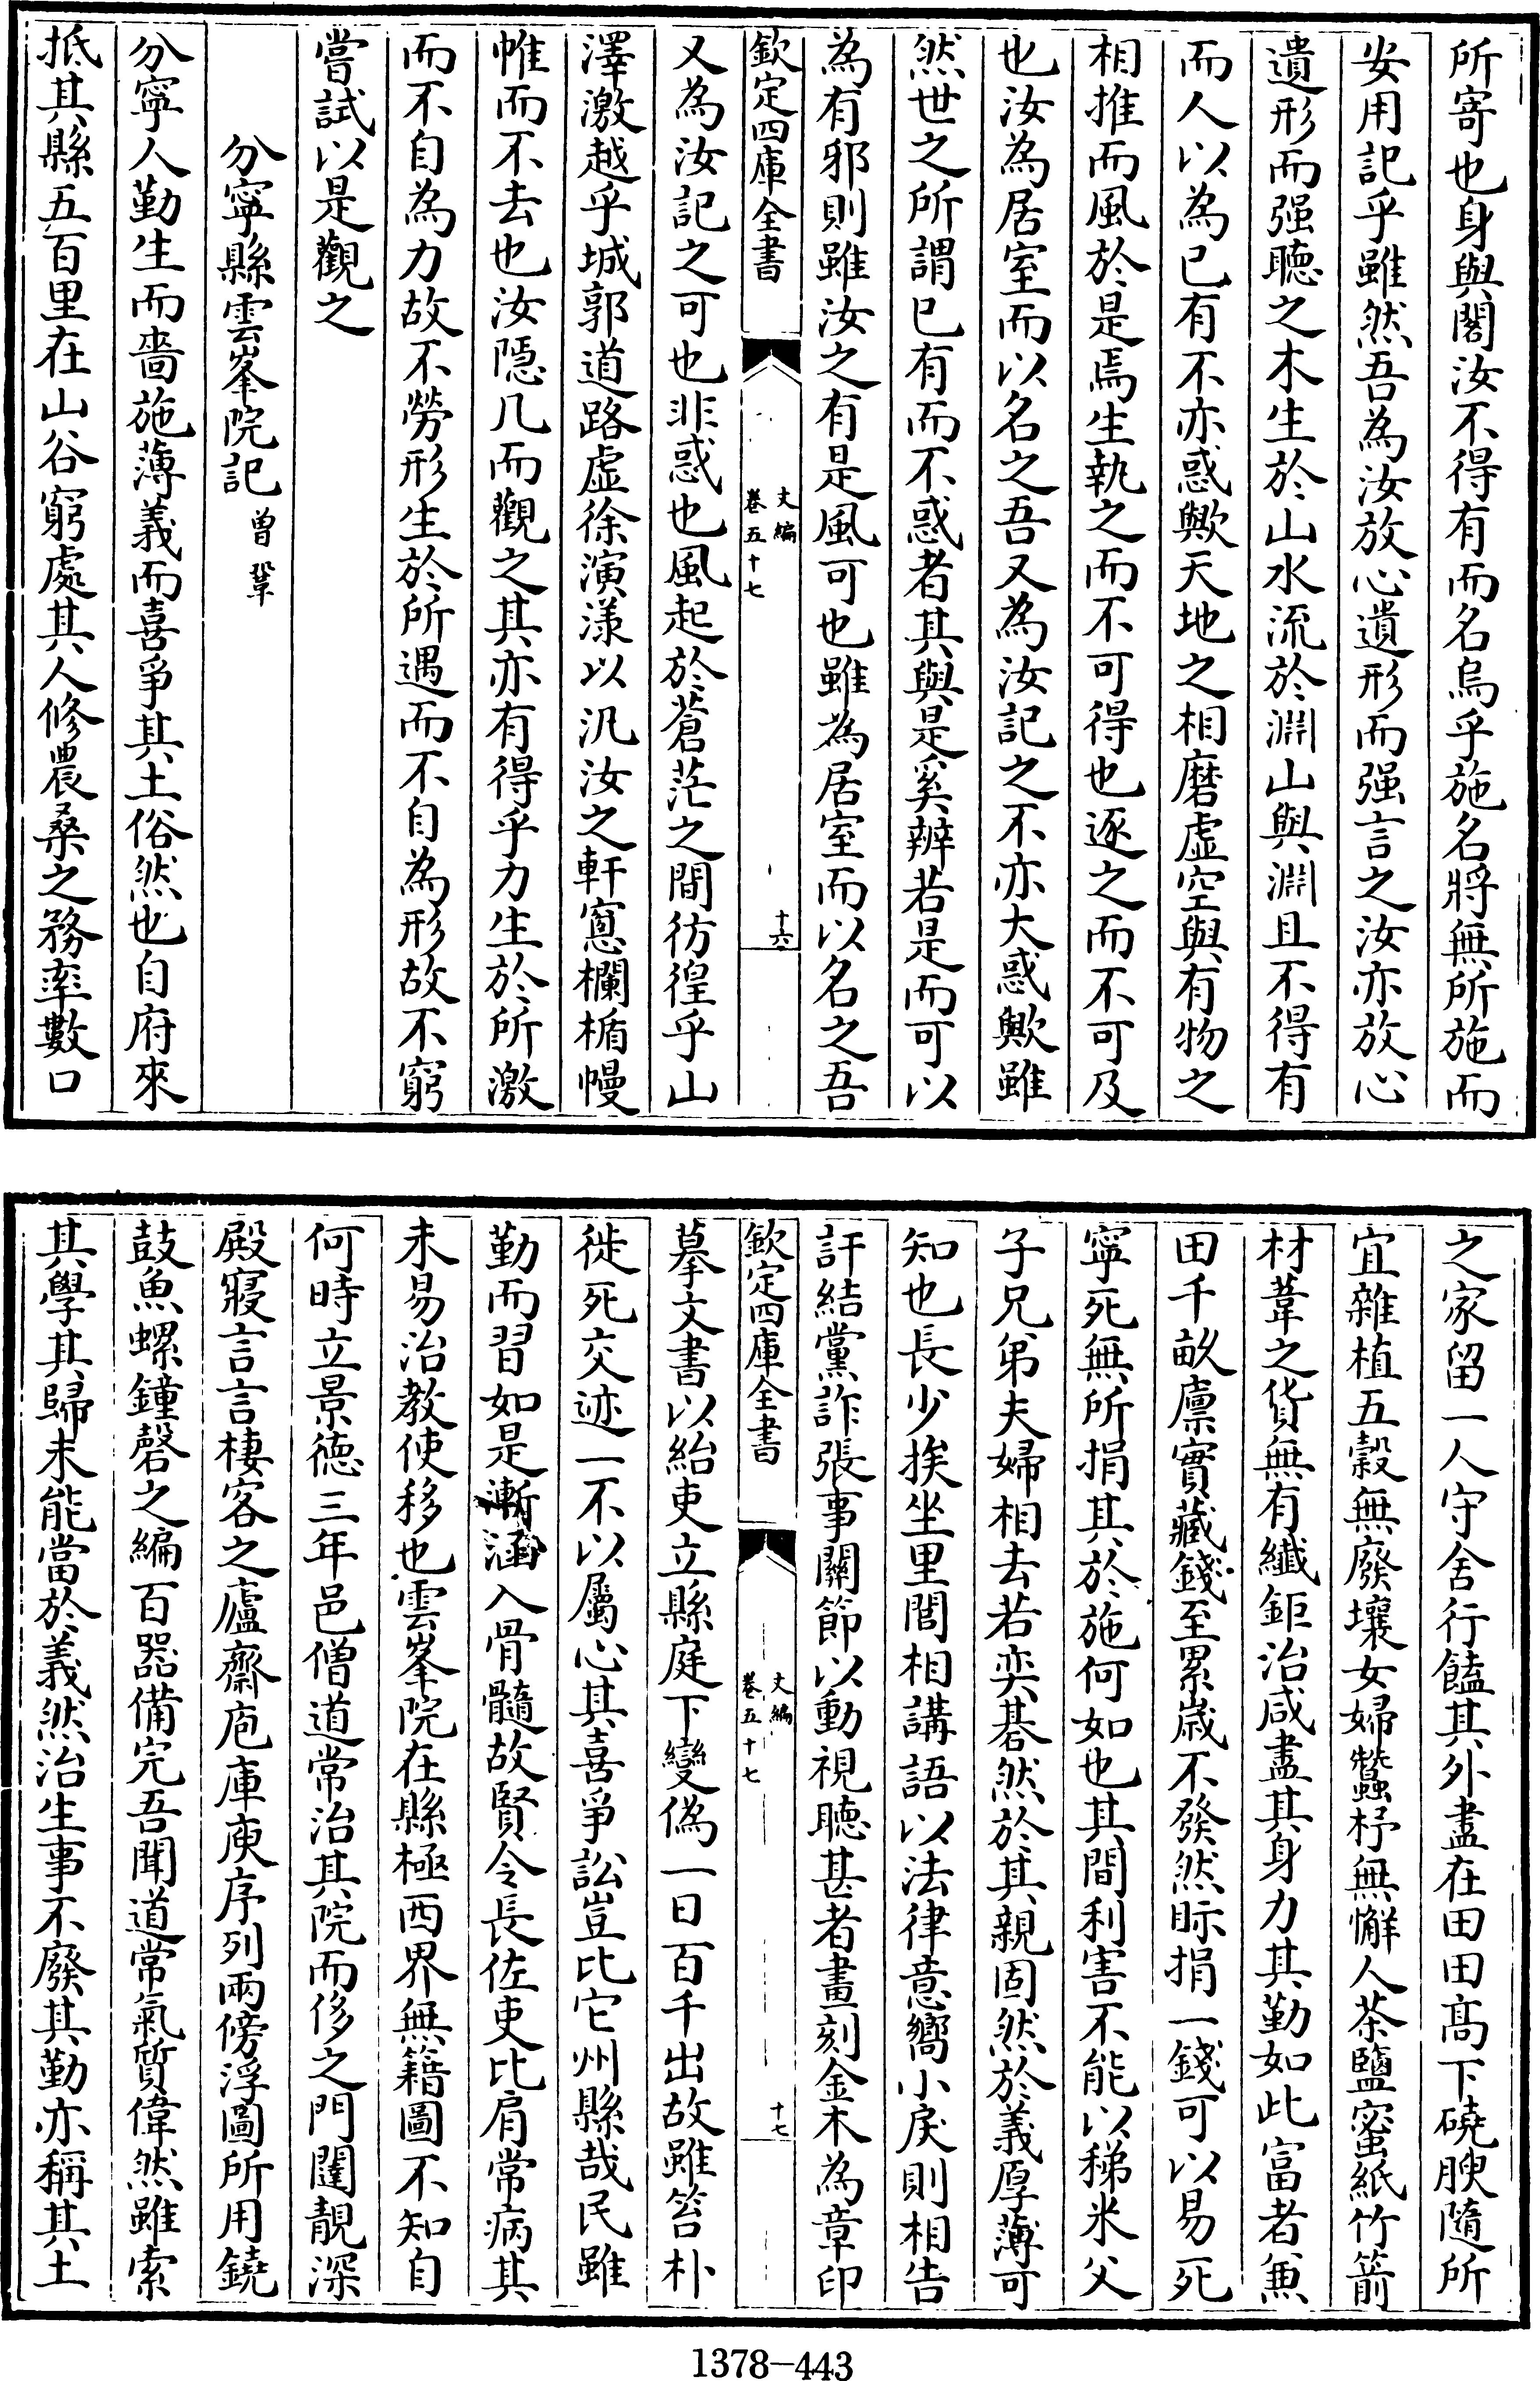 所寄也身與閣汝不得有而名烏乎施名將無所施而
安用記乎雖然吾為汝放心遺形而强言之汝亦放心
遺形而强聽之木生於山水流於淵山與淵且不得有
而人以為已有不亦惑歟天地之相磨虚空與有物之
相推而風於是焉生執之而不可得也逐之而不可及
也汝為居室而以名之吾又為汝記之不亦大惑歟雖
然世之所謂已有而不惑者其與是奚辨若是而可以
為有邪則雖汝之有是風可也雖為居室而以名之吾
欽定四庫全書
文編
卷五十七
十六
又為汝記之可也非惑也風起於蒼茫之間彷徨乎山
澤激越乎城郭道路虚徐演漾以汎汝之軒窻欄楯幔
帷而不去也汝隱几而觀之其亦有得乎力生於所激
而不自為力故不勞形生於所遇而不自為形故不窮
嘗試以是觀之
分寧縣雲峯院記 曽鞏
分寧人勤生而嗇施薄義而喜爭其土俗然也自府來
抵其縣五百里在山谷窮處其人修農桑之務率數口
之家留一人守舍行饁其外盡在田田髙下磽腴隨所
宜雜植五穀無廢壤女婦蠶杼無懈人茶鹽蜜紙竹箭
材葦之貨無有纎鉅治咸盡其身力其勤如此富者兼
田千畝廪實藏錢至累歲不發然眎捐一錢可以易死
寧死無所捐其於施何如也其間利害不能以稊米父
子兄弟夫婦相去若奕碁然於其親固然於義厚薄可
知也長少挨坐里閭相講語以法律意嚮小戾則相告
訐結黨詐張事關節以動視聽甚者畫刻金木為章印
欽定四庫全書
文編
卷五十七
十七
摹文書以紿吏立縣庭下變偽一日百千出故雖笞朴
徙死交迹一不以屬心其喜爭訟豈比它州縣哉民雖
勤而習如是漸涵入骨髓故賢令長佐吏比肩常病其
未易治教使移也雲峯院在縣極西界無籍圖不知自
何時立景德三年邑僧道常治其院而侈之門闥靚深
殿寢言言棲客之廬齋庖庫庾序列兩傍浮圖所用鐃
鼓魚螺鐘磬之編百器備完吾聞道常氣質偉然雖索
其學其歸未能當於義然治生事不廢其勤亦稱其土
1378-443